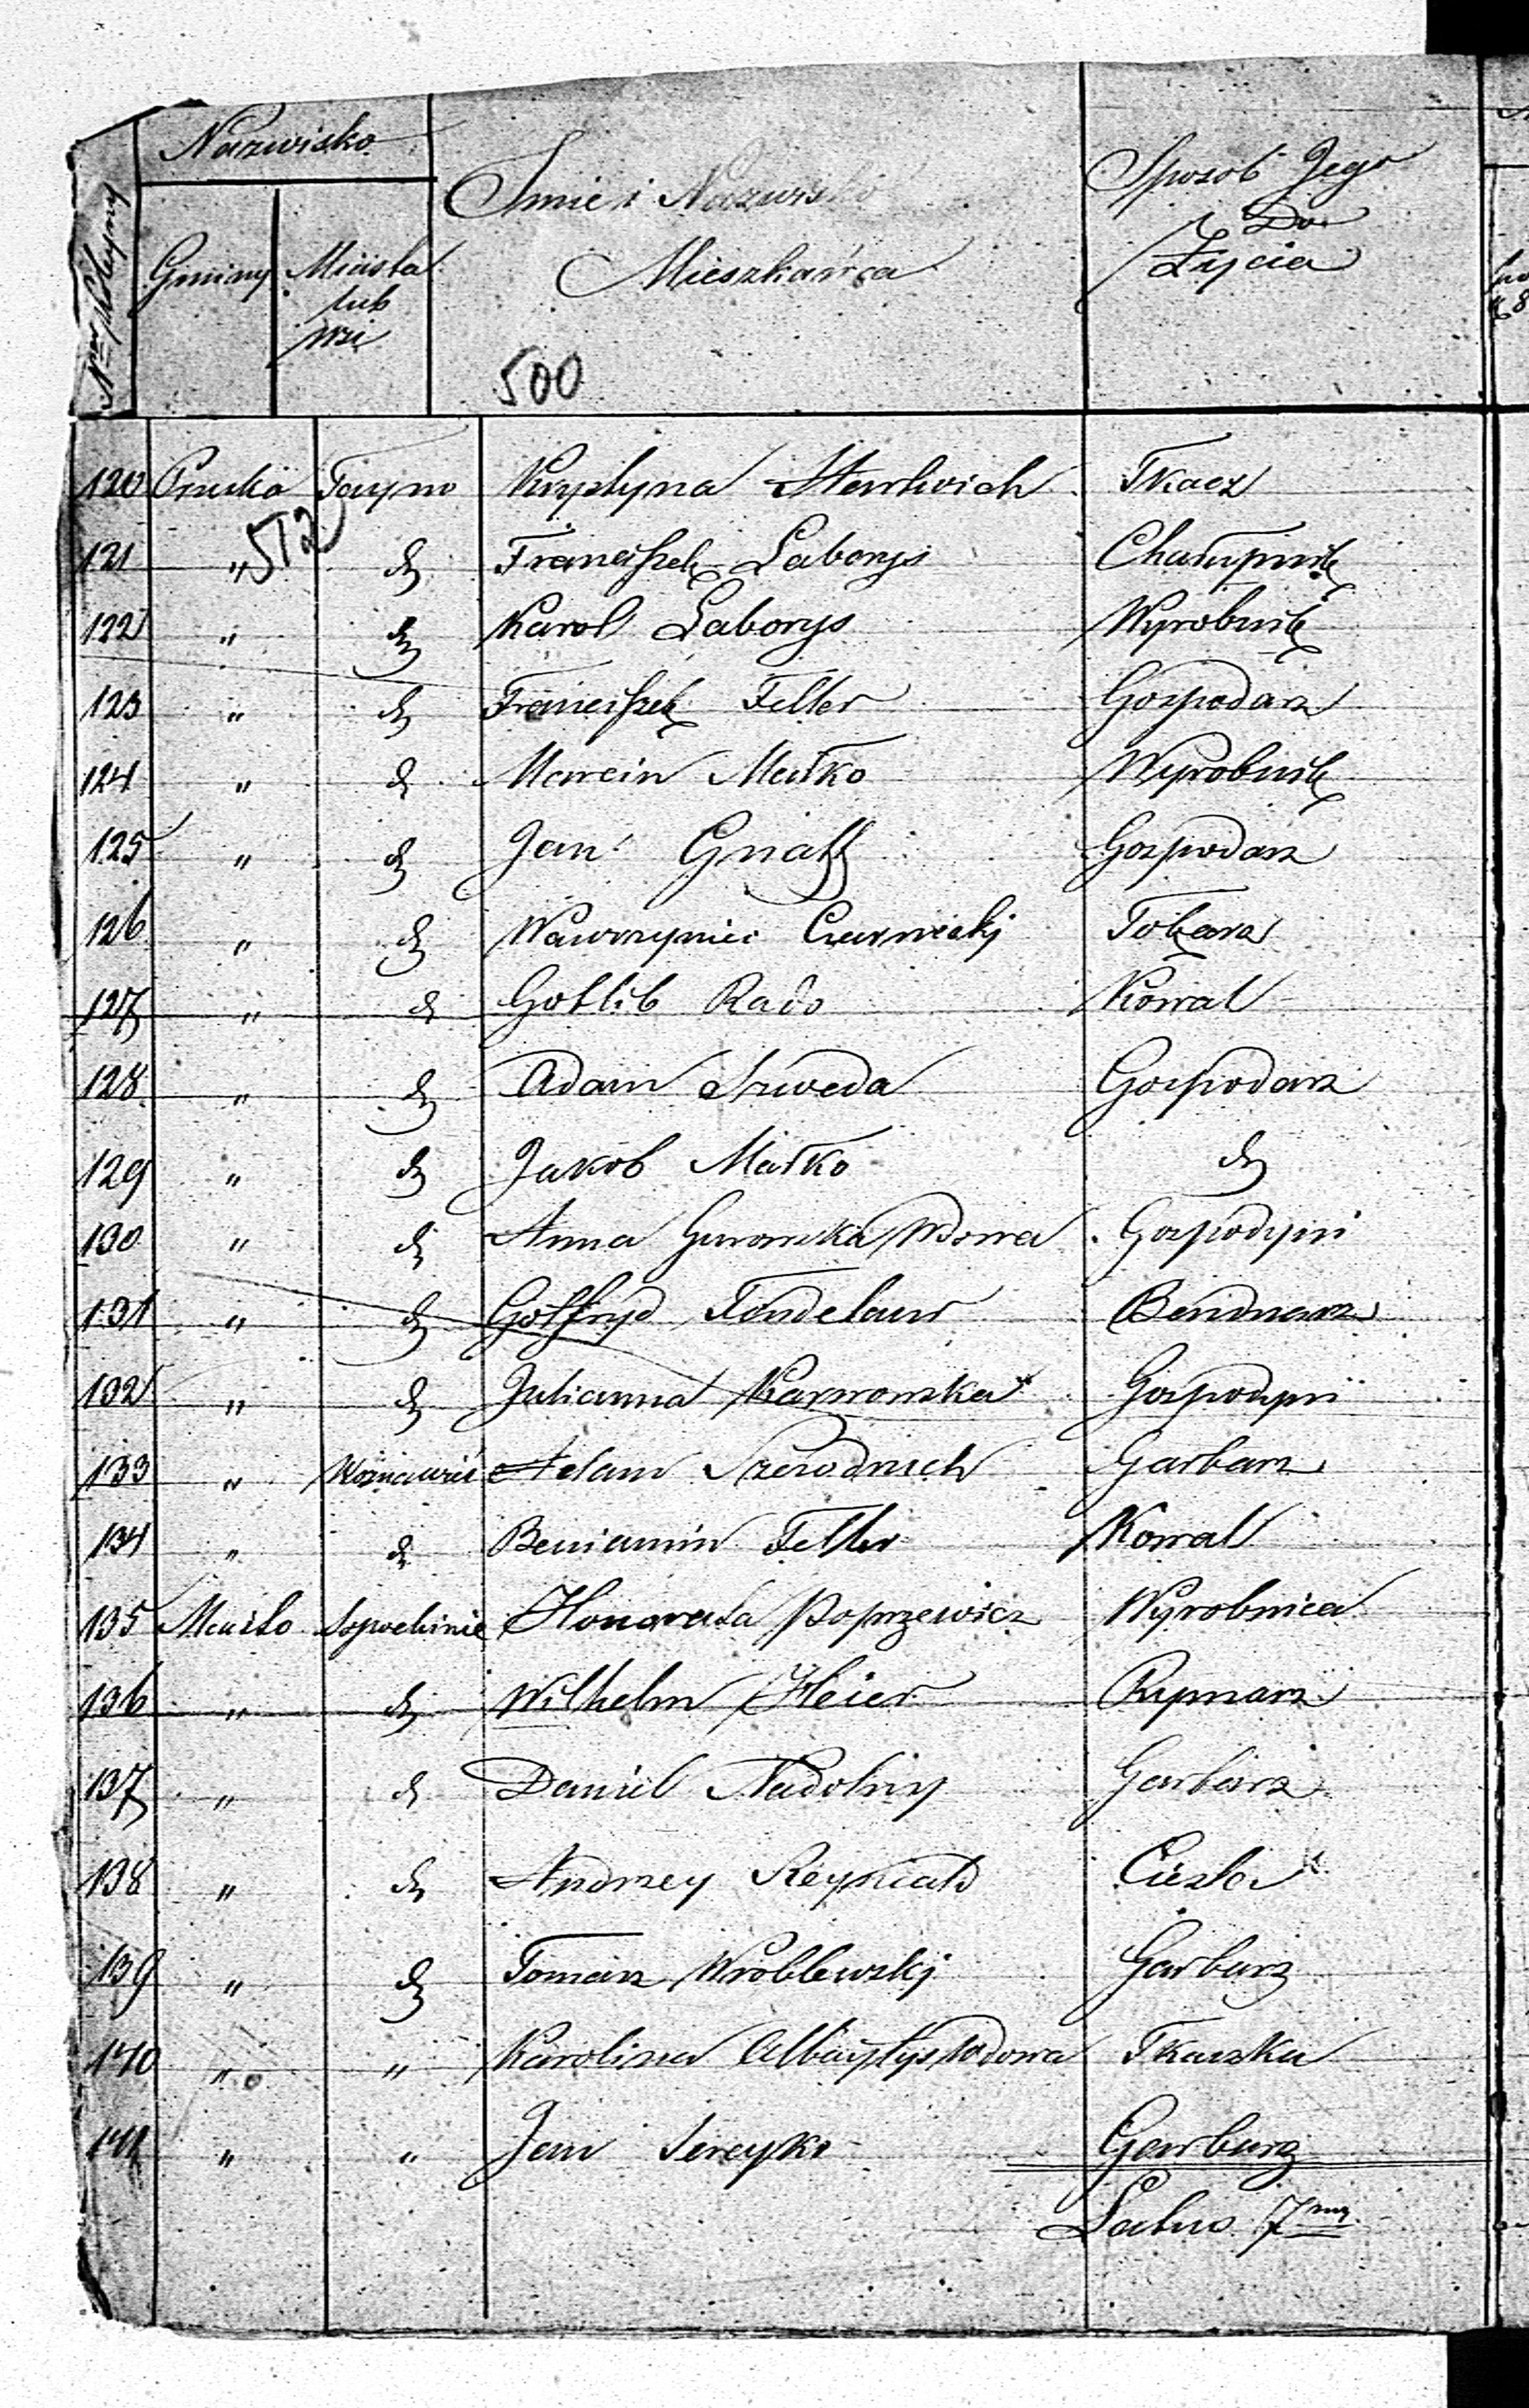 Nazwisko
Gminy
Miasta lub Wsi
Imie i Nazwisko Mieszkańca
Sposob Jego Do Życia
500
512
120 Pruska Tayno Krystyna Hartwich Tkacz
121 " do Franciszek Laborys Chałupnik
122 " do Karol Laborys Wyrobnik
123 " do Franciszek Feller Gospodarz
124 " do Marcin Matko Wyrobnik
125 " do Jan Gnatt Gospodarz
126 " do Wawrzyniec Czarniecki Tokarz
127 " do Gotlib Rado Kowal
128 " do Adam Szweda Gospodarz
129 " do Jakob Matko do
130 " do Anna Gurowska Wdowa Gospodyni
131 " do Gotfryd Bendnarz
132 " do Julianna Karwowska Gospodyni
133 " Woznawieś Adam Garbarz
134 " do Beniamin Feller Kowal
135 Miasto Honorata Poprzewicz Wyrobnica
136 " do Wilhelm Heier Rymarz
137 " do Daniel Nadolny Garbarz
138 " do Andrzey Ciesla
139 " do Tomasz Wroblewski Garbarz
140 " " Karolina Wdowa Tkaczka
141 " " Jan Sereyko Garbarz
Latus 7my